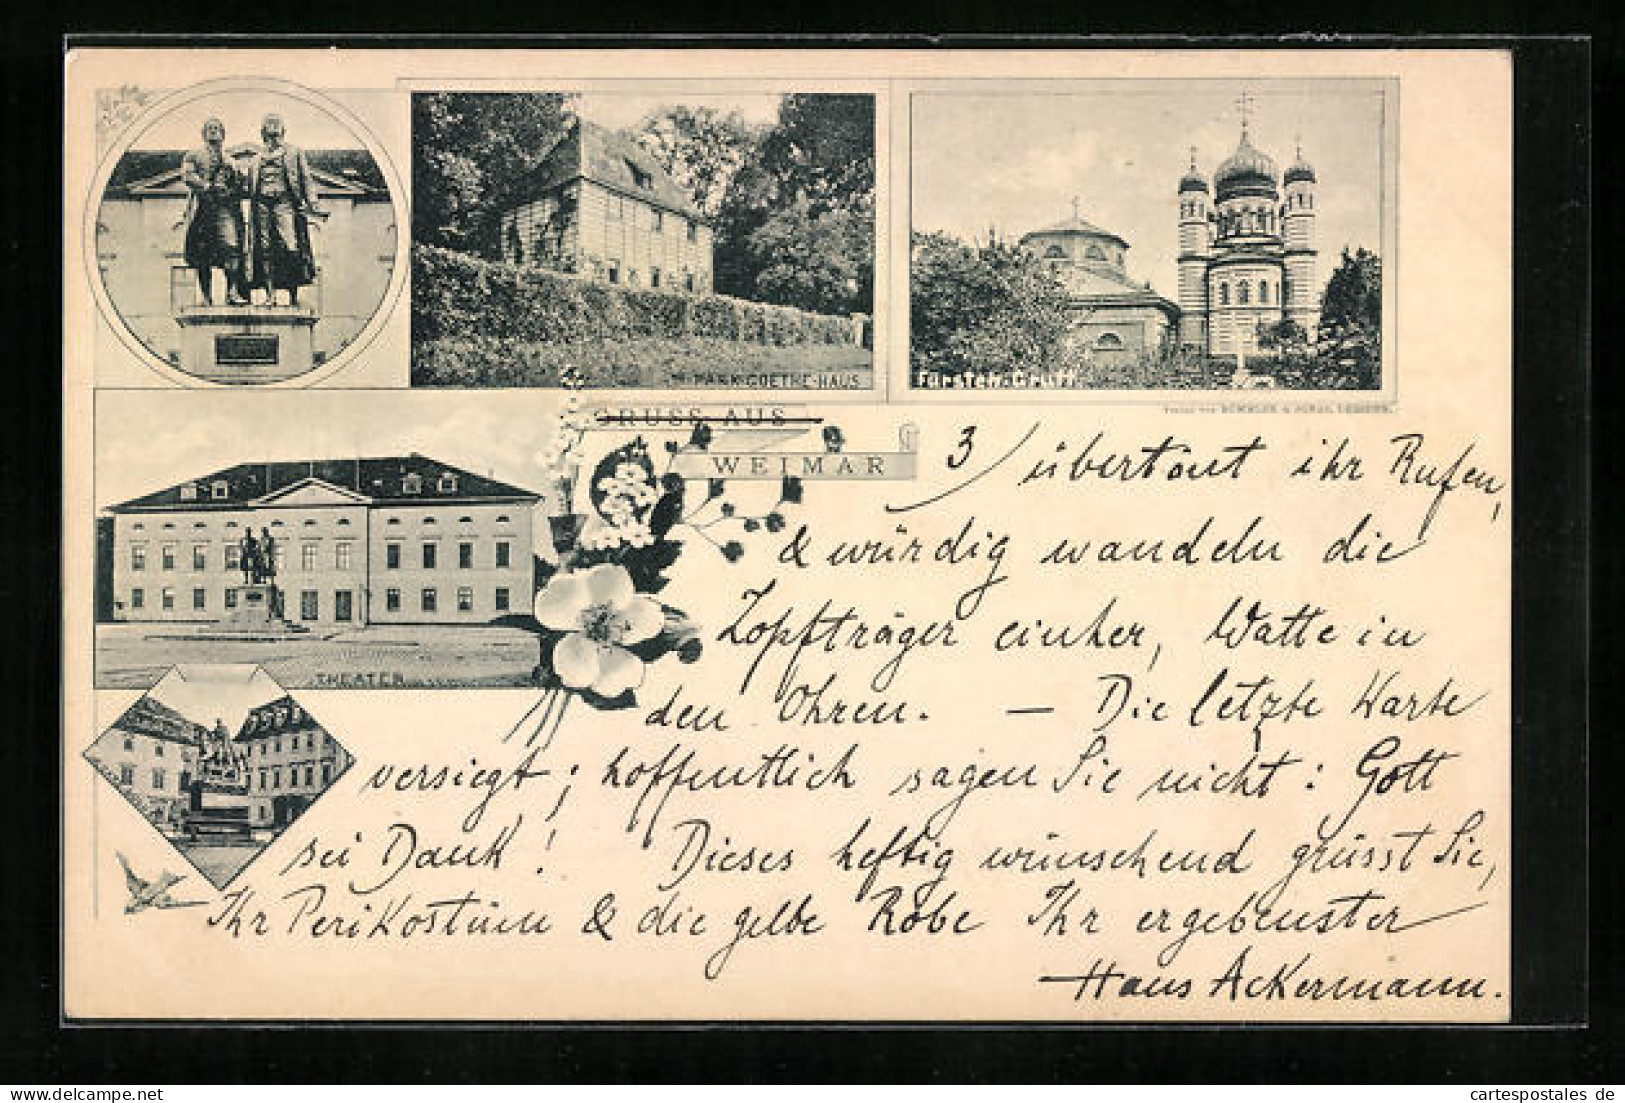 PARK-GOETHE-HAUS
Fürsten-Gruft
Verlag von RÖMMLER & JONAS, DRESDEN.
GRUSS AUS
WEIMAR
THEATER
3/ übertönt ihr Rufen,
& würdig wandeln die
Zopfträger einher, Watte in
den Ohren. — Die letzte Karte
versiegt; hoffentlich sagen Sie nicht: Gott
sei Dank! Dieses heftig wünschend grüsst Sie,
Ihr Perikostüm & die gelbe Robe Ihr ergebenster
Hans Ackermann.
cartespostales de